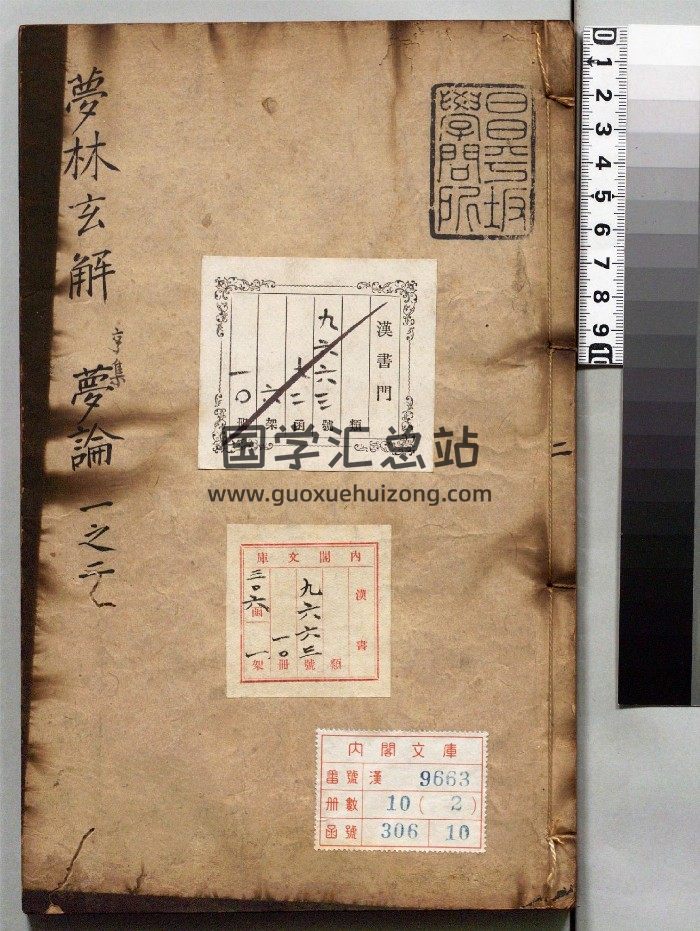 夢林玄解 亨集 夢論 一之二
昌平坂
學問所
漢書門
類
九六六三號
函
六架
一〇冊
国学汇总站
www.guoxuehuizong.com
二
內閣文庫
漢書
類
九六六三號
一〇冊
三〇六函
一架
內閣文庫
番號 漢 9663
冊數 10 ( 2 )
函號 306 10
0 1 2 3 4 5 6 7 8 9 10